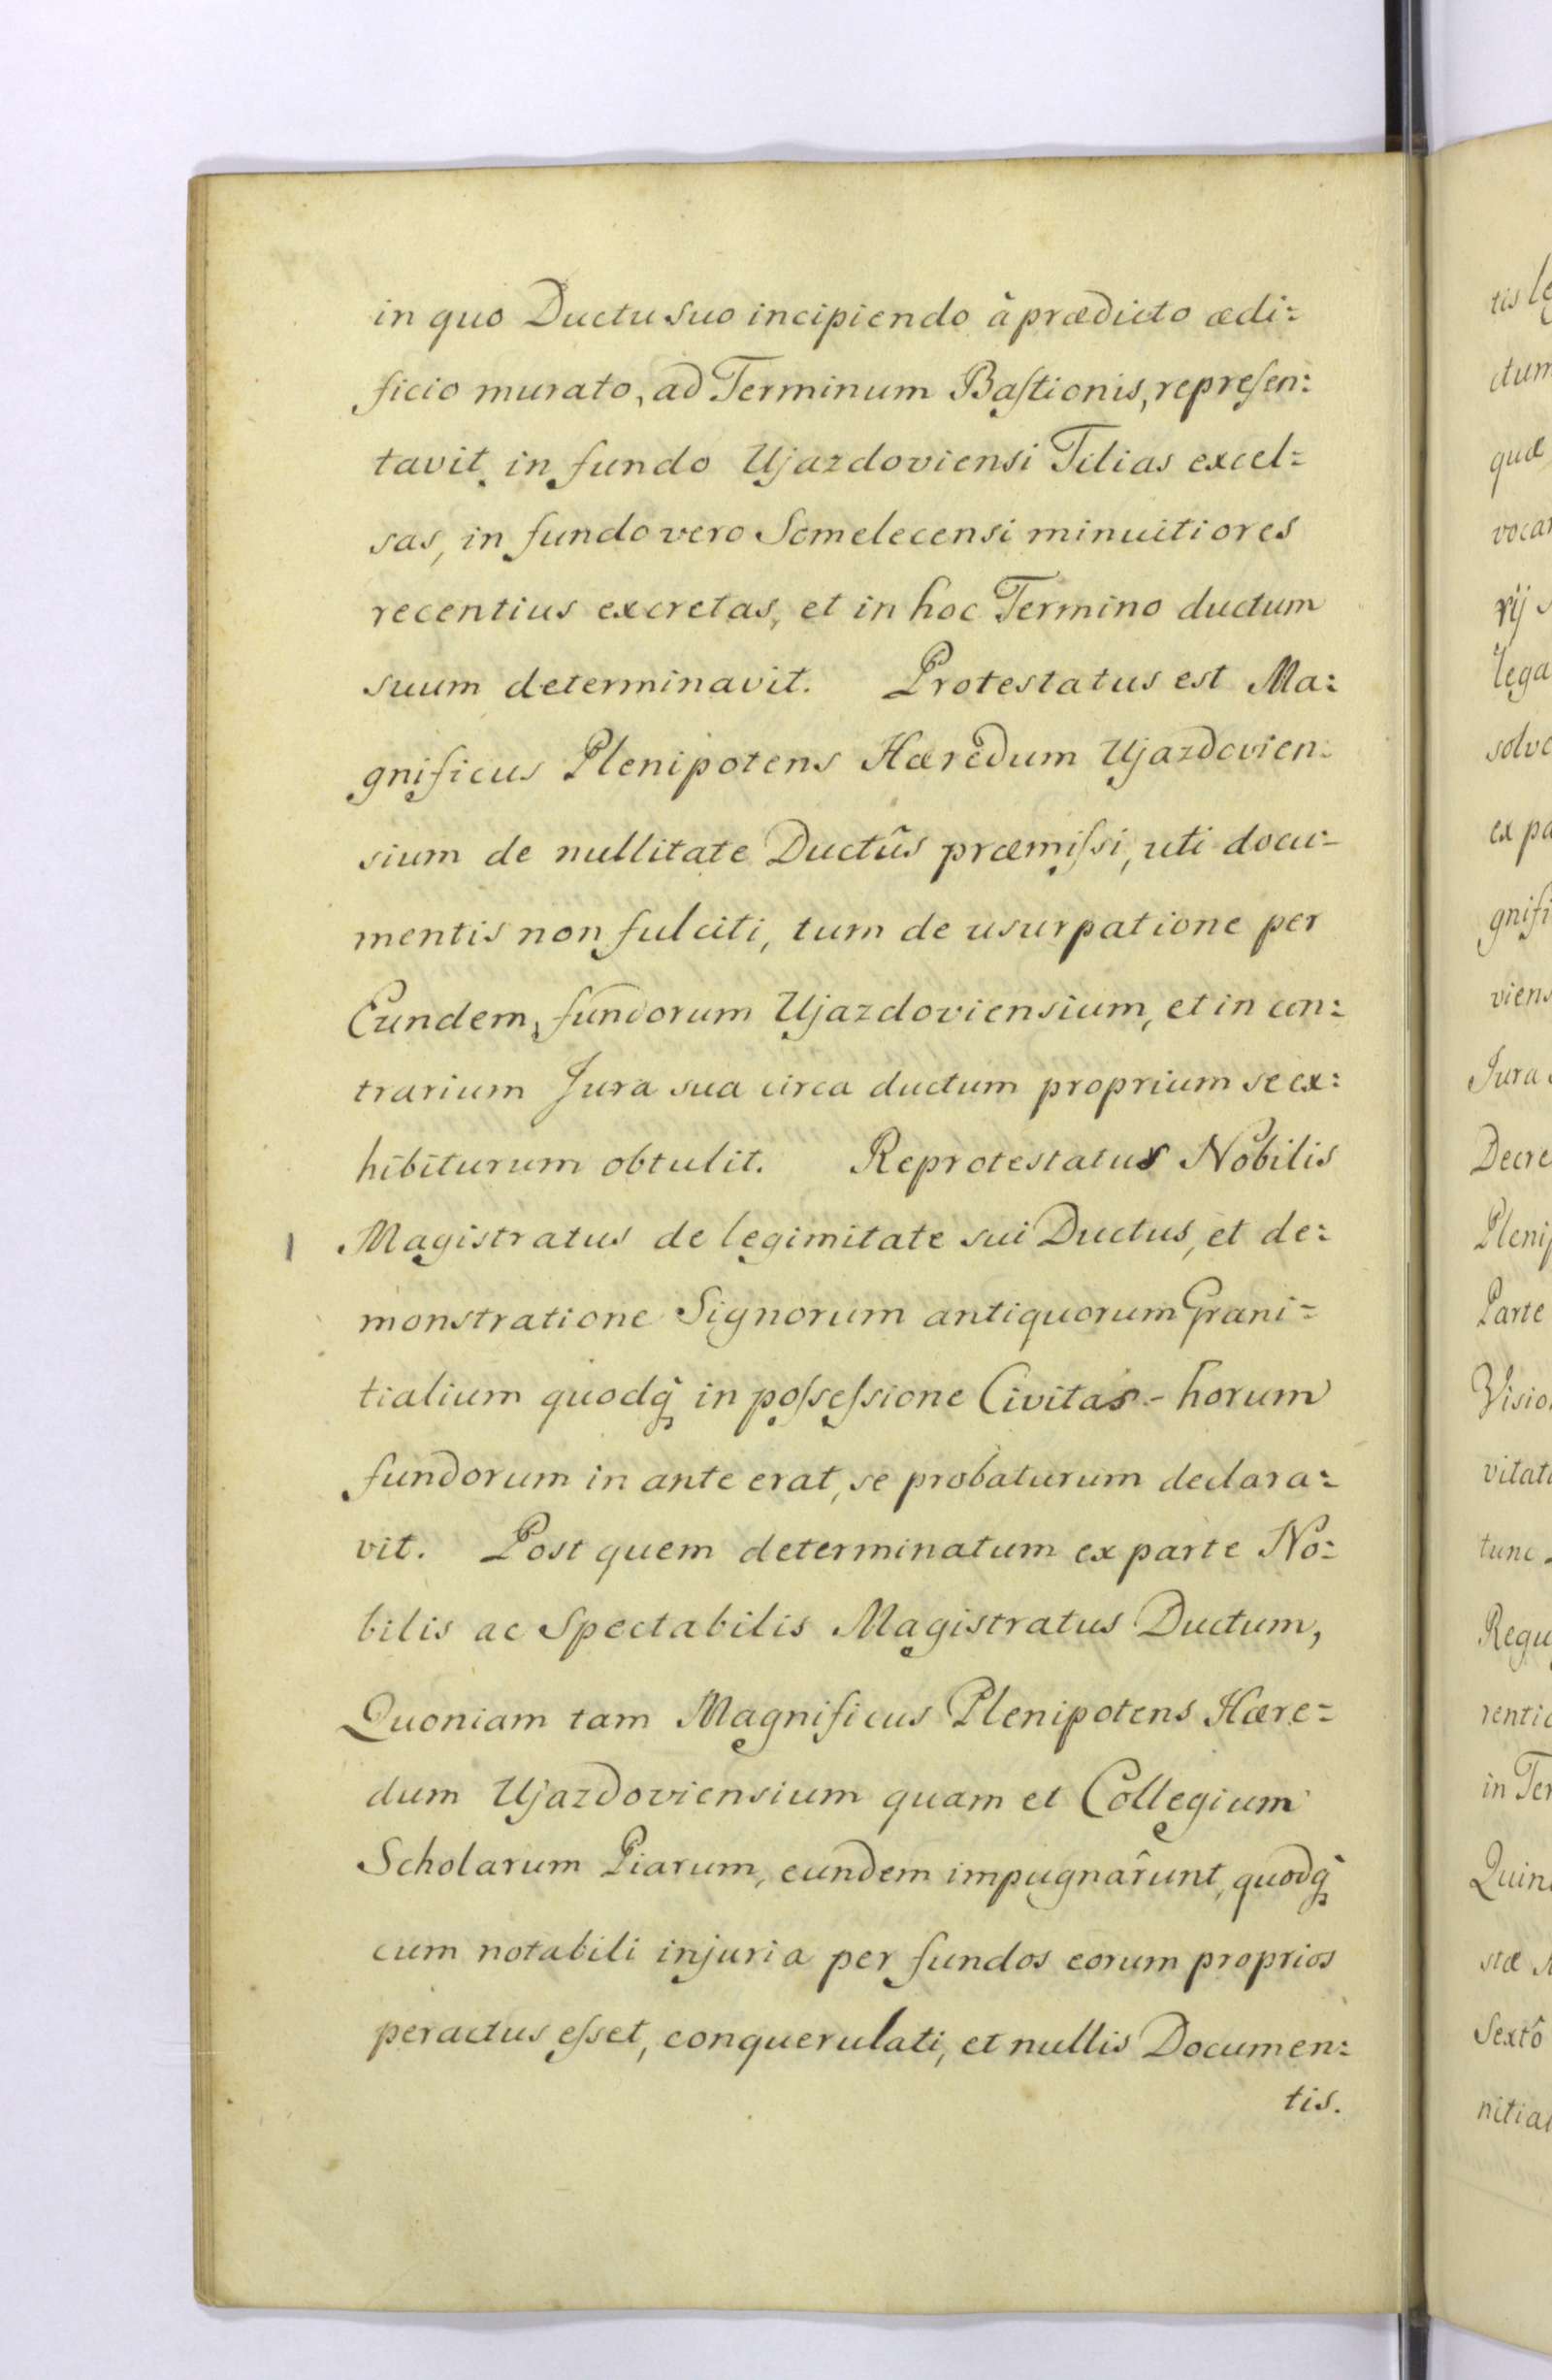 in quo Ductu suo incipiendo à prædicto ædi=
ficio murato, ad Terminum Baſtionis, repreſen=
tavit, in fundo Ujazdoviensi Tilias excel=
sas, in fundo vero Somelecensi minutiores
recentius excretas, et in hoc Termino ductum
suum determinavit. Protestatus est Ma=
gnificus Plenipotens Hæredum Ujazdovien=
sium de nullitate Ductûs præmiſsi, uti docu-
mentis non fulciti, tum de usurpatione per
Eundem, fundorum Ujazdoviensium, et in con=
trarium Jura sua circa ductum proprium se ex=
hibiturum obtulit. Reprotestatus Nobilis
Magistratus de legimitate sui Ductus, et de=
monstratione Signorum antiquorum Grani=
tialium quodq̃ in poſseſsione Civitas - horum
fundorum in ante erat, se probaturum declara=
vit. Post quem determinatum ex parte No=
bilis ac Spectabilis Magistratus Ductum,
Quoniam tam Magnificus Plenipotens Hære=
dum Ujazdoviensium quam et Collegium
Scholarum Piarum, eundem impugnârunt, quodq̃
cum notabili injuria per fundos eorum proprios
peractus eſset, conquerulati, et nullis Documen=
tis.
tis
ctum
quæ
rij
solvo
ex pa
gnifi
viens
Jura
Decre
Plenip
Parte
Visio
vitati
tunc
Regu
rentio
in Ter
Quin
stæ
Sextô
nitial